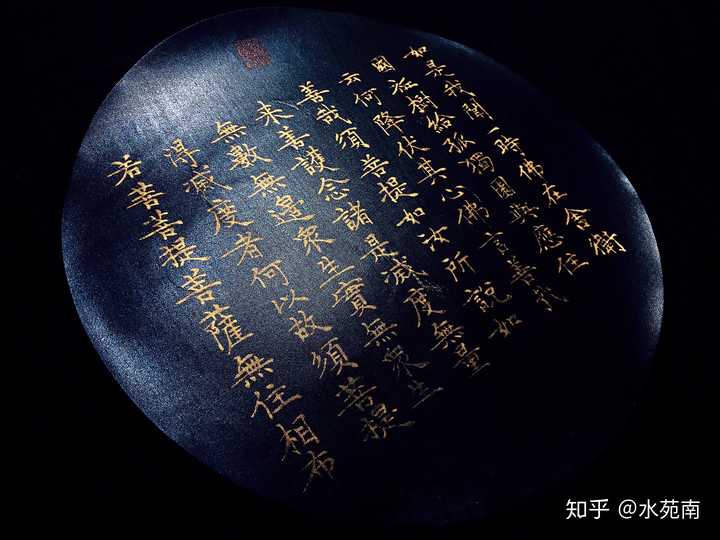 如是我聞一時佛在舍衛
國祇樹給孤獨園與應住
云何降伏其心佛言善哉
善哉須菩提如汝所說如
来善護念諸是滅度無量
無數無邊衆生實無衆生
得滅度者何以故須菩提
若菩菩提菩薩無住相布
知乎 @水苑南